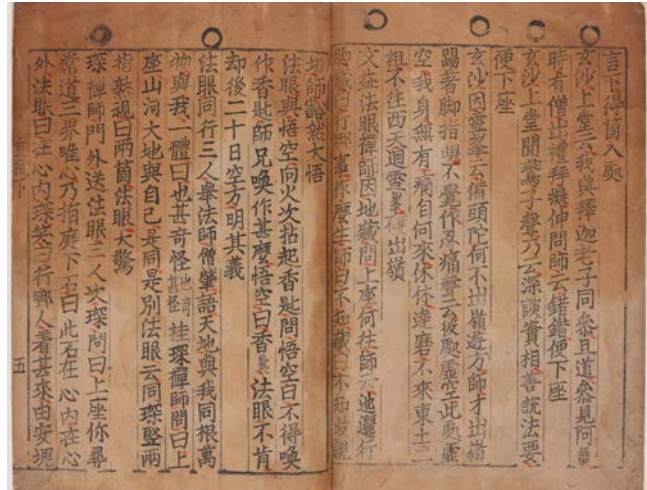 言下得箇入處
玄沙上堂云我與釋迦老子同參且道參見阿誰
時有僧出禮拜擬伸問師云錯錯便下座
玄沙上堂聞鷰子聲乃云深談實相善說法要
便下座
玄沙因雪峯云備頭陀何不出嶺遊方師才出嶺
踢著脚指頭不覺作忍痛聲云彼處虛空此處虛
空我身無有痛自何來休休達磨不來東土二
祖不往西天迴雪峯出嶺
文益法眼禪師因地藏問上座何往師云迤邐行
脚藏曰行脚事作麼生師曰不知藏曰不知最親
切師豁然大悟
法眼與悟空向火次拈起香匙問悟空曰不得喚
作香匙師兄喚作甚麼悟空曰香匙法眼不肯
却後二十日空方明其義
法眼同行三人舉法師僧肇語天地與我同根萬
物與我一體曰也甚奇怪也甚奇怪桂琛禪師問曰上
座山河大地與自己是同是別法眼云同琛竪兩
指熟視曰兩箇法眼大驚
琛禪師門外送法眼三人次琛問曰上座你尋
常道三界唯心乃指庭下石曰此石在心內在心
外法眼曰在心內琛笑云行脚人着甚來由安塊
五